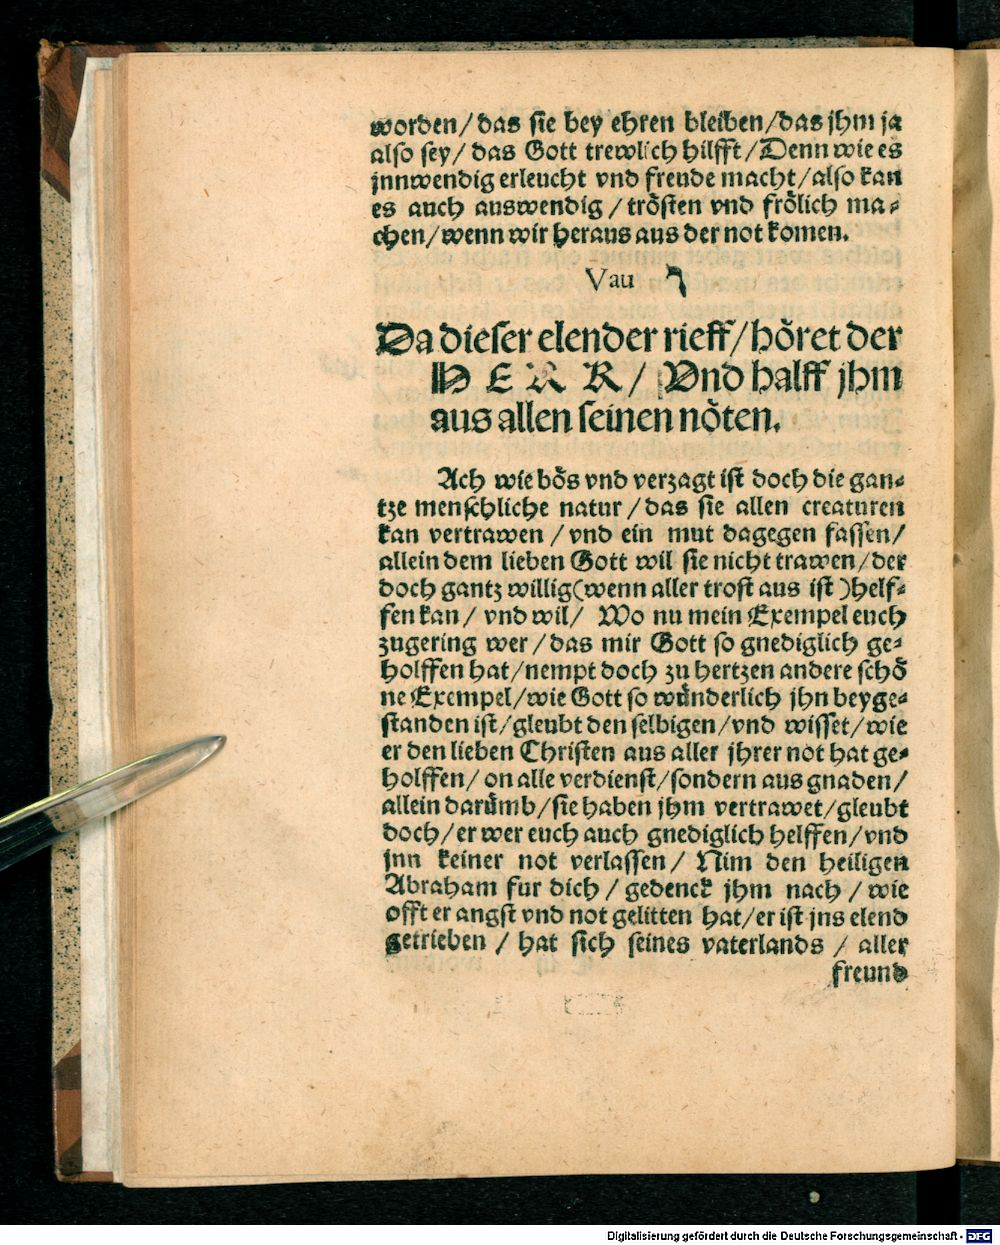 worden/das sie bey ehren bleiben/das jhm ja
also sey/ das Gott trewlich hilfft/Denn wie es
jnnwendig erleucht vnd freude macht/also kan
es auch auswendig/trösten vnd frölich ma⸗
chen/wenn wir heraus aus der not komen.
Vau ו
Da dieser elender rieff/höret der
HERR/ Vnd halff jhm
aus allen seinen nöten.
Ach wie bös vnd verzagt ist doch die gan⸗
tze menschliche natur/das sie allen creaturen
kan vertrawen/vnd ein mut dagegen fassen/
allein dem lieben Gott wil sie nicht trawen/der
doch gantz willig(wenn aller trost aus ist)helf⸗
fen kan/ vnd wil/ Wo nu mein Exempel euch
zugering wer/das mir Gott so gnediglich ge⸗
holffen hat/nempt doch zu hertzen andere schö
ne Exempel/wie Gott so wünderlich jhn beyge⸗
standen ist/gleubt den selbigen/vnd wisset/wie
er den lieben Christen aus aller jhrer not hat ge⸗
holffen/ on alle verdienst/sondern aus gnaden/
allein darümb/sie haben jhm vertrawet/gleubt
doch/er wer euch auch gnediglich helffen/vnd
jnn keiner not verlassen/ Nim den heiligen
Abraham fur dich/gedenck jhm nach/wie
offt er angst vnd not gelitten hat/er ist jns elend
getrieben/hat sich seines vaterlands/ aller
freund
Digitalisierung gefördert durch die Deutsche Forschungsgemeinschaft - DFG